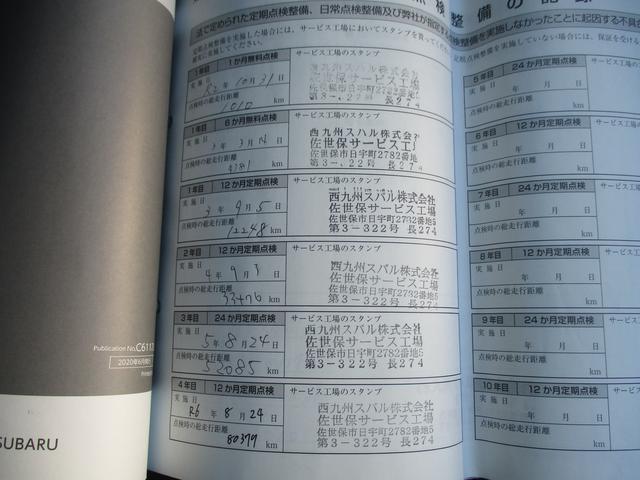 Publication No.C611
2020年6月
SUBARU
点検整備の記録
法で定められた定期点検整備、日常点検整備及び弊社が指定す
点検整備を実施しなかったことに起因する不具合
定期点検整備を実施した場合には、サービス工場においてスタンプを
確実に実施してください。
1年目 1か月無料点検
サービス工場のスタンプ
実施日 R2年 10月 31日
西九州スバル株式会社
佐世保サービス工場
佐世保市日宇町2782番地
点検時の総走行距離
1010 km
1年目 6か月無料点検
サービス工場のスタンプ
実施日 3年 3月 14日
西九州スバル株式会社
佐世保サービス工
佐世保市日宇町2782番地
点検時の総走行距離
km
1年目 12か月定期点検
サービス工場のスタンプ
実施日 3年 9月 5日
西九州スバル株式会社
佐世保サービス工場
佐世保市日宇町2782番地5
第3-322号 長274
点検時の総走行距離
12248 km
2年目 12か月定期点検
サービス工場のスタンプ
実施日 4年 9月 日
西九州スバル株式会社
佐世保サービス工場
佐世保市日宇町2782番地5
第3-322号 長274
点検時の総走行距離
33476 km
3年目 24か月定期点検
サービス工場のスタンプ
実施日 5年 8月 24日
西九州スバル株式会社
佐世保サービス工場
佐世保市日宇町2782番地5
第3-322号 長274
点検時の総走行距離
52085 km
4年目 12か月定期点検
サービス工場のスタンプ
実施日 R6年 8月 24日
西九州スバル株式会社
佐世保サービス工場
佐世保市日宇町2782番地5
第3-322号 長274
点検時の総走行距離
80379 km
5年目 24か月定期点検
実施日 年 月 日
点検時の総走行距離
km
6年目 12か月定期点検
実施日 年 月 日
点検時の総走行距離
km
7年目 24か月定期点検
実施日 年 月 日
点検時の総走行距離
km
8年目 12か月定期点検
実施日 年 月 日
点検時の総走行距離
km
9年目 24か月定期点検
実施日 年 月 日
点検時の総走行距離
km
10年目 12か月定期点検
実施日 年 月 日
点検時の総走行距離
km